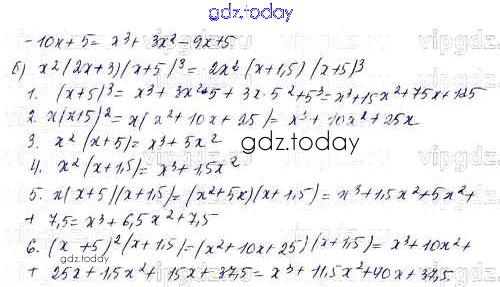 gdz.today
-10x+5= x³+ 3x²-9x+5
б) x²(2x+3)(x+5)³= 2x²(x+1,5)(x+5)³
1. (x+5)³= x³+3x²·5+3x·5²+5³=x³+15x²+75x+125
2. x(x+5)²=x(x²+10x+25)= x³+10x²+25x
gdz.today
3. x²(x+5)=x³+5x²
4. x²(x+1,5)=x³+1,5x²
5. x(x+5)(x+1,5)=(x²+5x)(x+1,5)= x³+1,5x²+5x²+
+ 7,5=x³+6,5x²+7,5
6. (x+5)²(x+1,5)=(x²+10x+25)(x+1,5)= x³+10x²+
+ 25x+1,5x²+ 15x+37,5=x³+11,5x²+40x+37,5
gdz.today